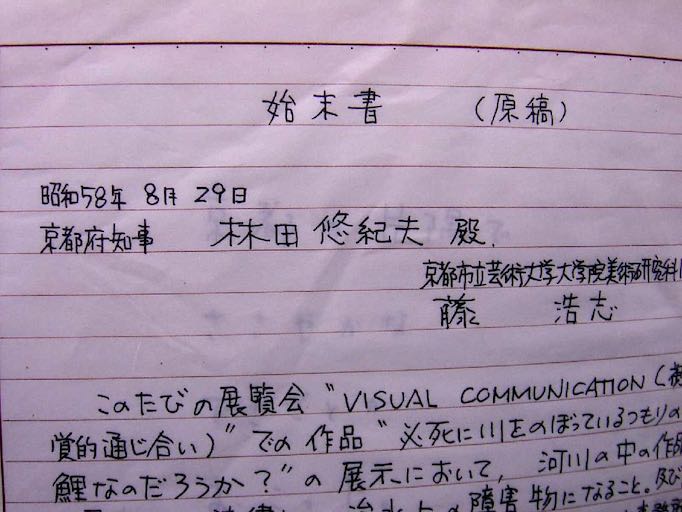 始末書 (原稿)
昭和58年 8月 29日
京都府知事 林田悠紀夫 殿.
京都市立芸術大学大学院美術研究科
藤 浩志
このたびの展覧会"VISUAL COMMUNICATION(視
覚的通じ合い)"での作品"必死に川をのぼっているつもりの
鯉なのだろうか?"の展示において, 河川の中の作品
治水上の障害物になること。及び